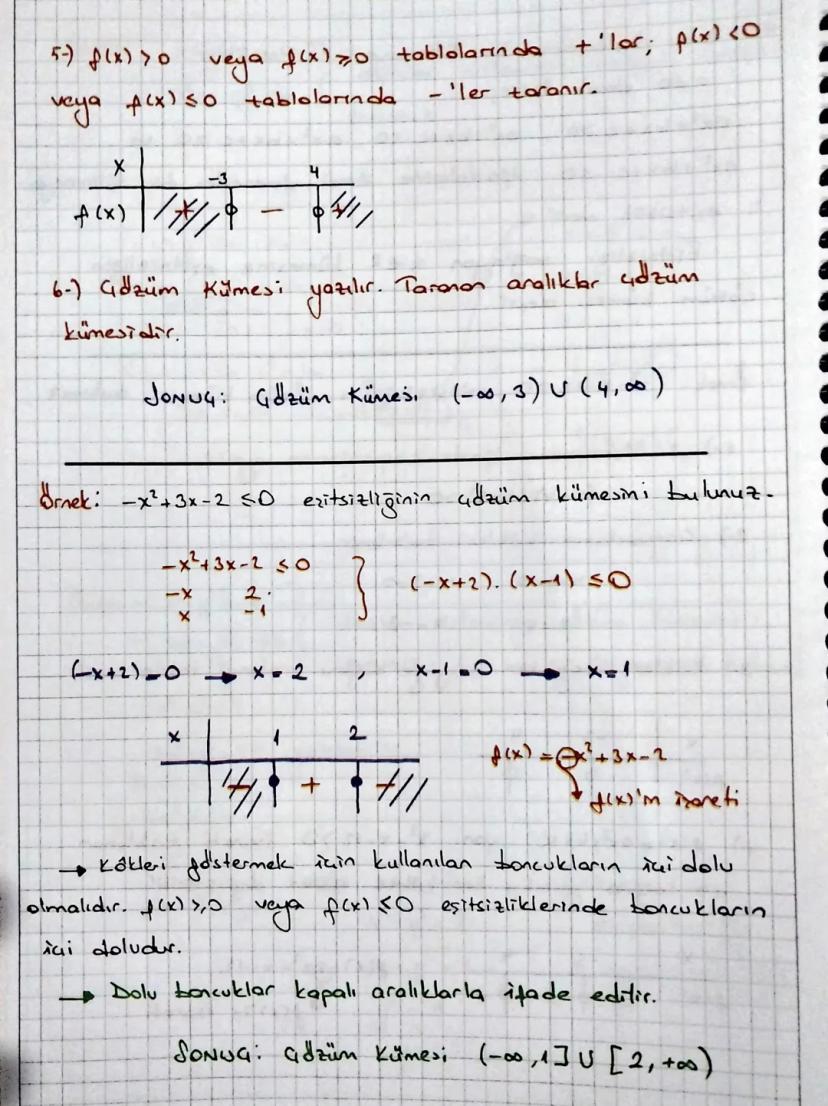 5-) f(x) > 0 veya f(x) ≥ 0 tablolarında + 'lar; f(x) < 0
veya f(x) ≤ 0 tablolarında - 'ler taranır.
x -3 4
f(x) + - +
6-) Çözüm Kümesi yazılır. Taranan aralıklar çözüm
kümesidir.
SONUÇ: Çözüm Kümesi (-∞, 3) U (4, ∞)
Örnek: -x²+3x-2 ≤ 0 eşitsizliğinin çözüm kümesini bulunuz.
-x²+3x-2 ≤ 0
-x 2
x -1
(-x+2).(x-1) ≤ 0
(-x+2)=0 → x = 2 , x-1=0 → x=1
x 1 2
- + -
f(x) = -x²+3x-2
f(x)'in işareti
→ Kökleri göstermek için kullanılan boncukların içi dolu
olmalıdır. f(x) ≥ 0 veya f(x) ≤ 0 eşitsizliklerinde boncukların
içi doludur.
→ Dolu boncuklar kapalı aralıklarla ifade edilir.
SONUÇ: Çözüm Kümesi (-∞, 1] U [2, +∞)